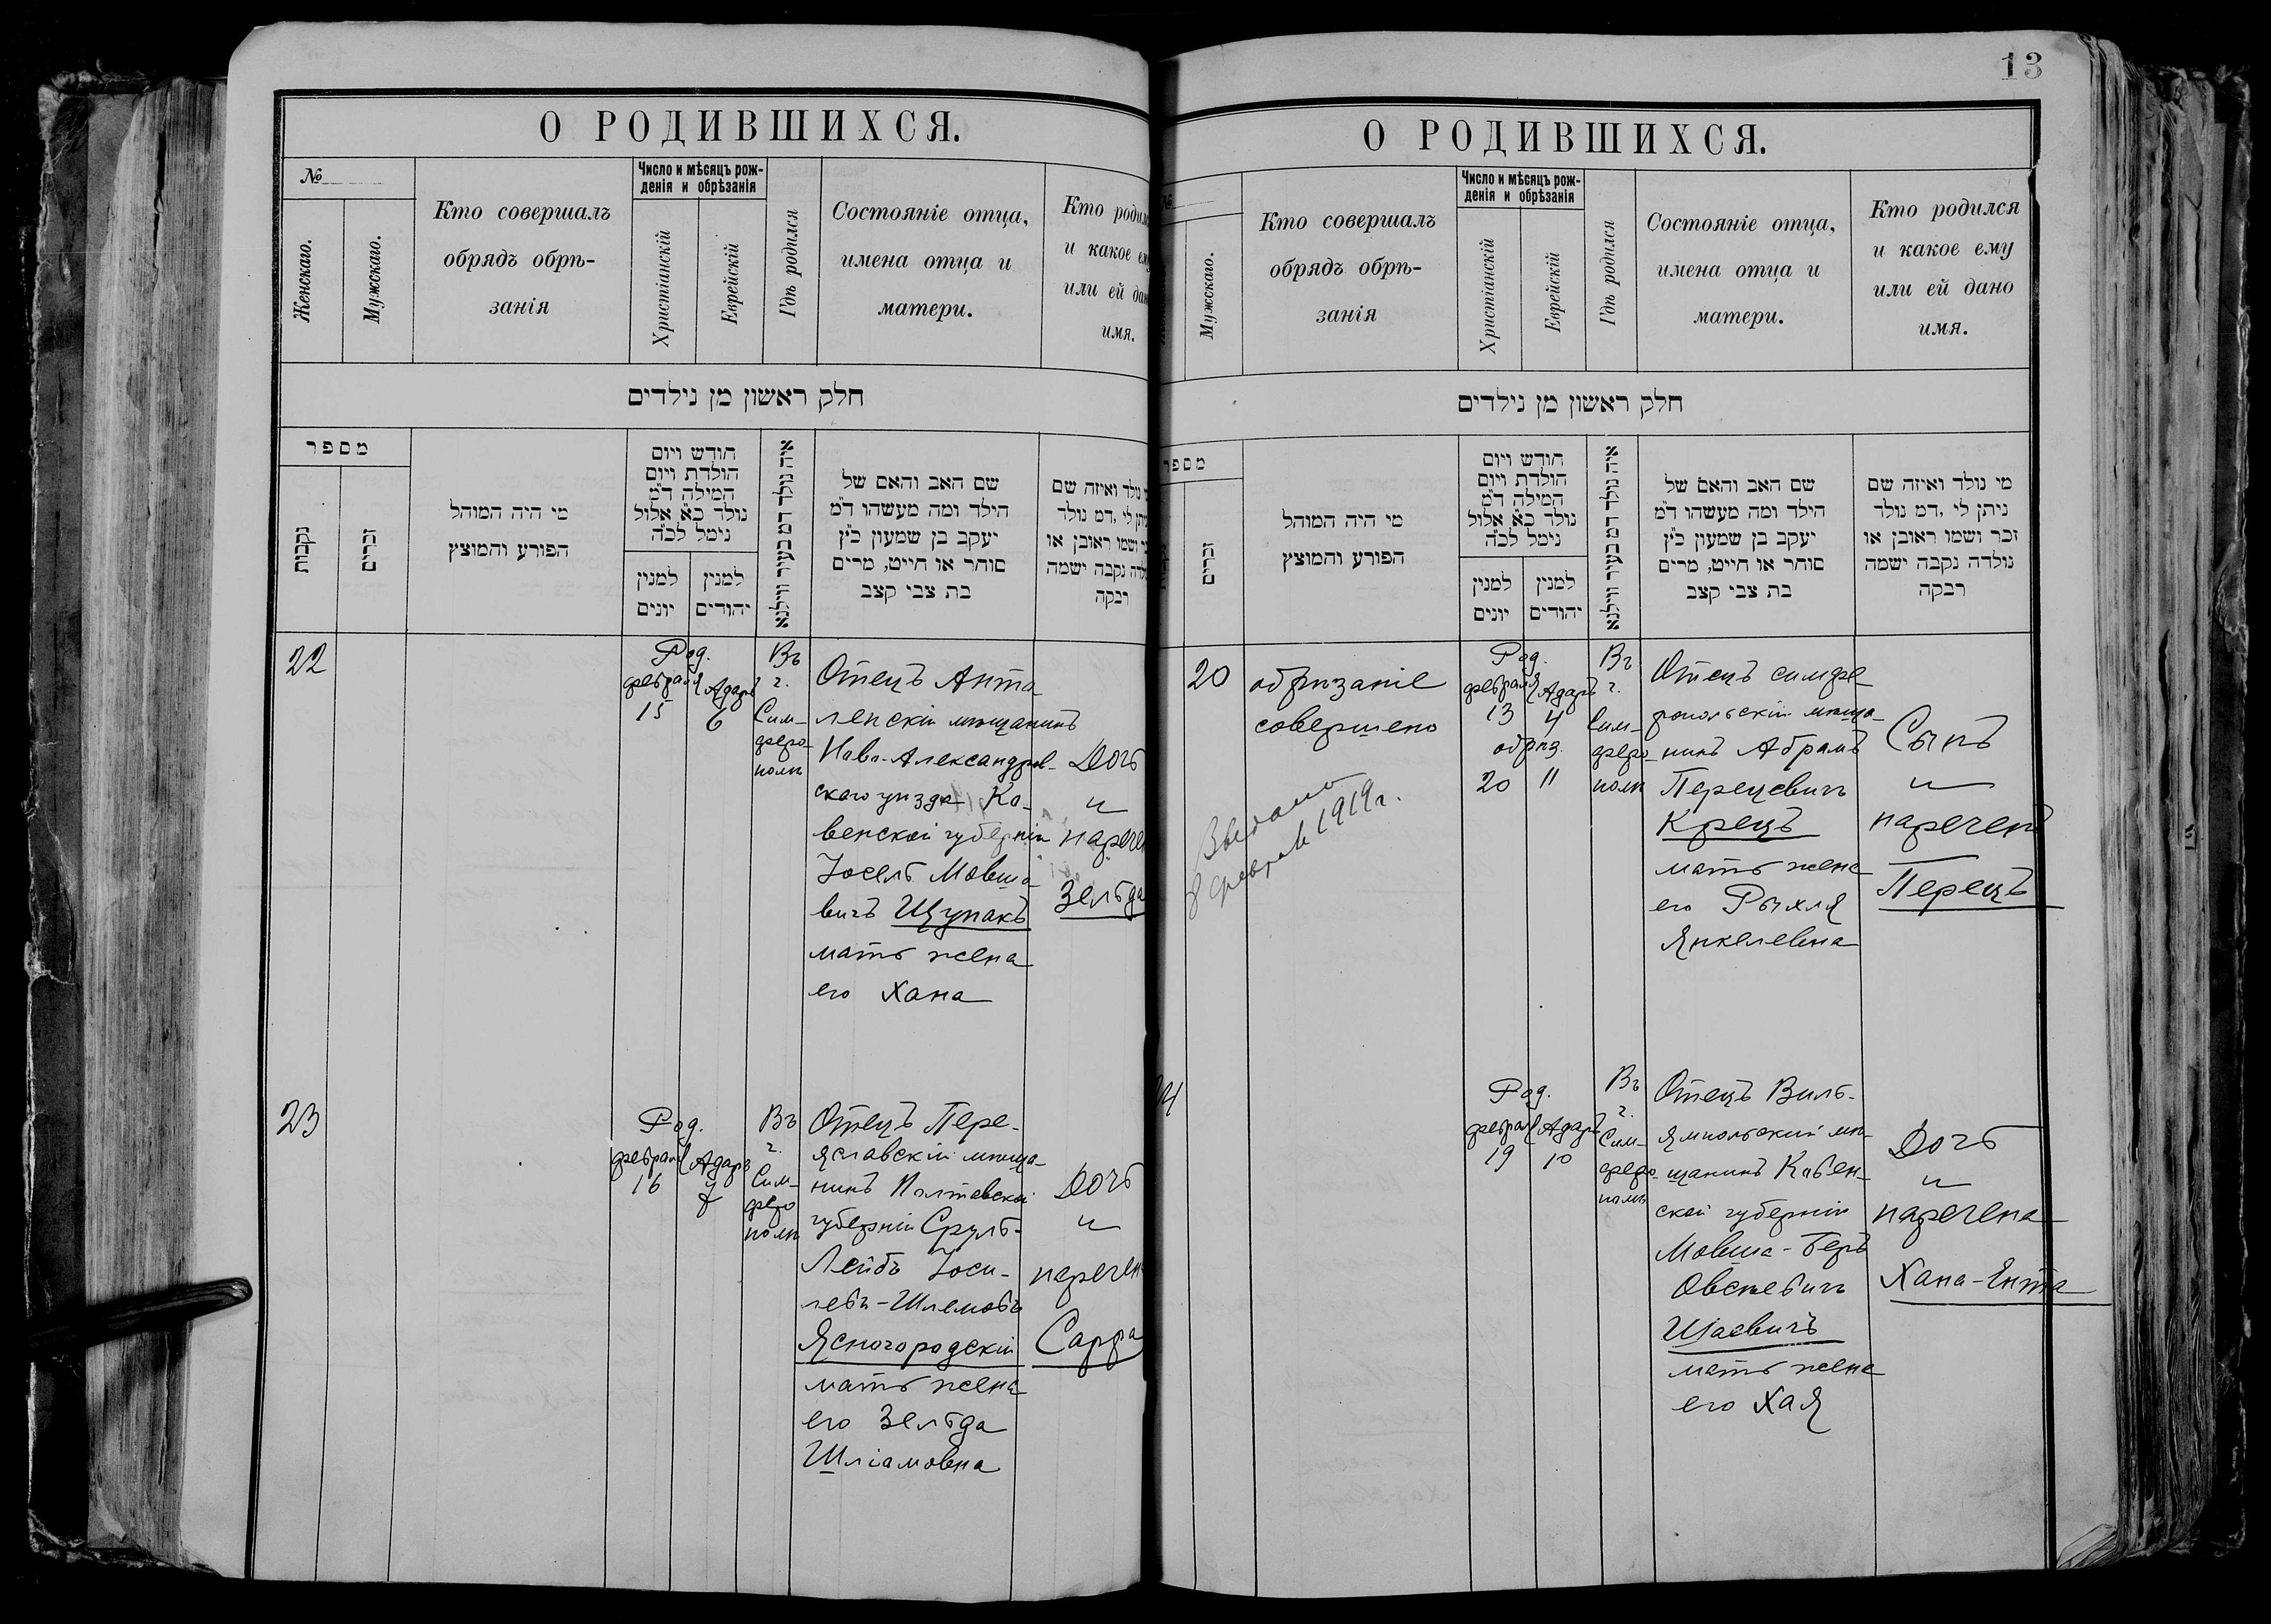 О РОДИВШИХСЯ.
№
Женскаго.
Мужскаго.
Кто совершалъ
обрядъ обрѣ-
занія
Число и мѣсяцъ рож-
денія и обрѣзанія
Христіанскій
Еврейскій
Гдѣ родился
Состояніе отца,
имена отца и
матери.
Кто родил
и какое ему
или ей дан
имя.
חלק ראשון מן נילדים
מספר
נקבות
זכרים
מי היה המוהל
הפורע והמוצץ
חודש ויום
הולדת ויום
המילה ד״מ
נולד כ״א אלול
נימל לכ״ה
למנין
יונים
למנין
יהודים
איה נולד דמ בעיר ווילנא
שם האב והאם של
הילד ומה מעשהו ד״מ
יעקב בן שמעון כ״ץ
סוחר או חייט, מרים
בת צבי קצב
נולד ואיזה שם
ניתן לי ,דמ נולד
ושמו ראובן או
נולדה נקבה ישמה
רבקה
22
Род.
февраля Адаръ
15 6
Въ
г.
Сим-
феро-
полѣ
Отецъ Анта-
ленскій мѣщанинъ
Ново-Александров-
скаго уѣзда Ко-
венской губерніи
Іосель Мовша-
вичъ Щупакъ
мать жена
его Хана
Дочь
и
наречен
Зельда
23
Род.
февраля Адаръ
16 7
Въ
г.
Сим-
феро
полѣ
Отецъ Пере-
яславскій мѣща-
нинъ Полтавской
губерніи Сруль-
Лейбъ Іоси-
левъ-Шлемовъ
Ясногородскій
мать жена
его Зельда
Шліамовна
Дочь
и
наречен
Сарра
13
О РОДИВШИХСЯ.
№
Мужскаго.
Кто совершалъ
обрядъ обрѣ-
занія
Число и мѣсяцъ рож-
денія и обрѣзанія
Христіанскій
Еврейскій
Гдѣ родился
Состояніе отца,
имена отца и
матери.
Кто родился
и какое ему
или ей дано
имя.
חלק ראשון מן נילדים
מספר
זכרים
מי היה המוהל
הפורע והמוצץ
חודש ויום
הולדת ויום
המילה ד״מ
נולד כ״א אלול
נימל לכ״ה
למנין
יונים
למנין
יהודים
איה נולד דמ בעיר ווילנא
שם האב והאם של
הילד ומה מעשהו ד״מ
יעקב בן שמעון כ״ץ
סוחר או חייט, מרים
בת צבי קצב
מי נולד ואיזה שם
ניתן לי ,דמ נולד
זכר ושמו ראובן או
נולדה נקבה ישמה
רבקה
20
обрѣзаніе
совершено
Выдано
8 февраля 1919 г.
Род.
февраля Адаръ
13 4
обрѣз.
20 11
Въ
г.
Сим-
феро-
полѣ
Отецъ симфе-
ропольскій мѣща-
нинъ Абрамъ
Перецевичъ
Крецъ
мать жена
его Рыхля
Янкелевна
Сынъ
и
нареченъ
Перецъ
24
Род.
февраля Адаръ
19 10
Въ
г.
Сим-
феро-
полѣ
Отецъ Виль-
ямпольскій мѣ-
щанинъ Ковен-
ской губерніи
Мовша-Беръ
Овсѣевичъ
Шаевичъ
мать жена
его Хая
Дочь
и
наречена
Хана-Ента